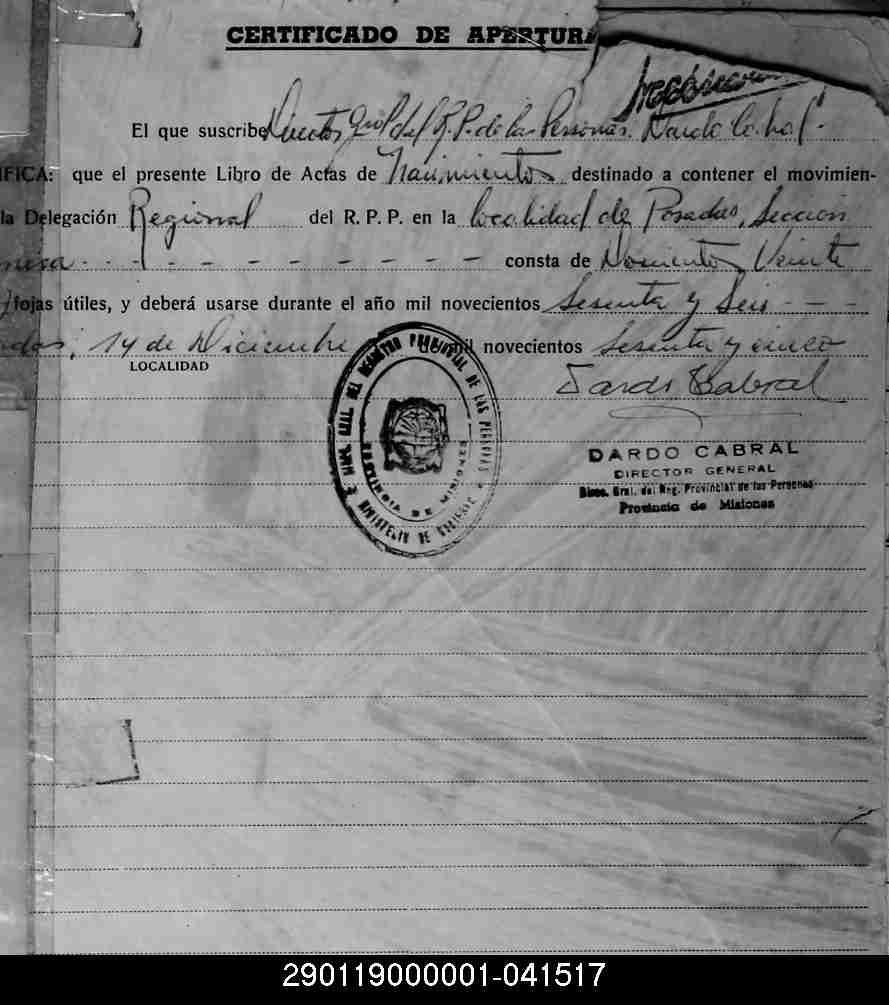 CERTIFICADO DE APERTURA
El que suscribe Director Gral del R.P. de las Personas. Dardo Cabral.
IFICA: que el presente Libro de Actas de Nacimientos destinado a contener el movimien-
la Delegación Regional del R. P. P. en la localidad de Posadas, Sección
- - - - - - - - consta de Doscientos Veinte
fojas útiles, y deberá usarse durante el año mil novecientos Sesenta y Seis - - -
14 de Diciembre de mil novecientos Sesenta y cinco
LOCALIDAD
Dardo Cabral
DIREC. GRAL. DEL REGISTRO PROVINCIAL DE LAS PERSONAS
PROVINCIA DE MISIONES
MINISTERIO DE
DARDO CABRAL
DIRECTOR GENERAL
Direc. Gral. del Reg. Provincial de las Personas
Provincia de Misiones
290119000001-041517